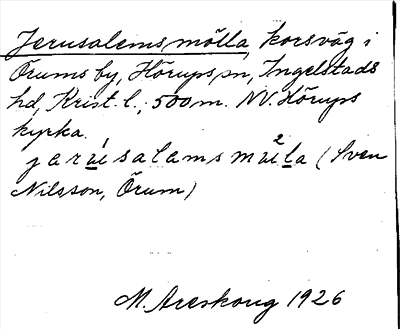 Jerusalemsmölla, korsväg i
Örums by, Hörups sn, Ingelstads
hd, Krist. l.; 500 m. NV. Hörups
kyrka.
jarúsalamsmùla (Sven
Nilsson, Örum)
M. Areskoug 1926